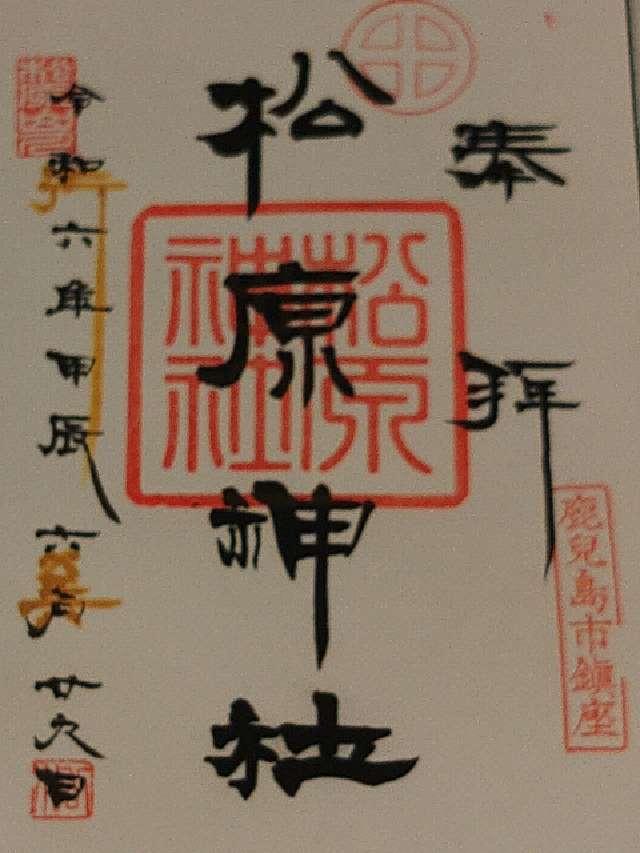 奉拝
鹿兒島市鎮座
松原神社
松原神社
令和六年甲辰六月廿九日